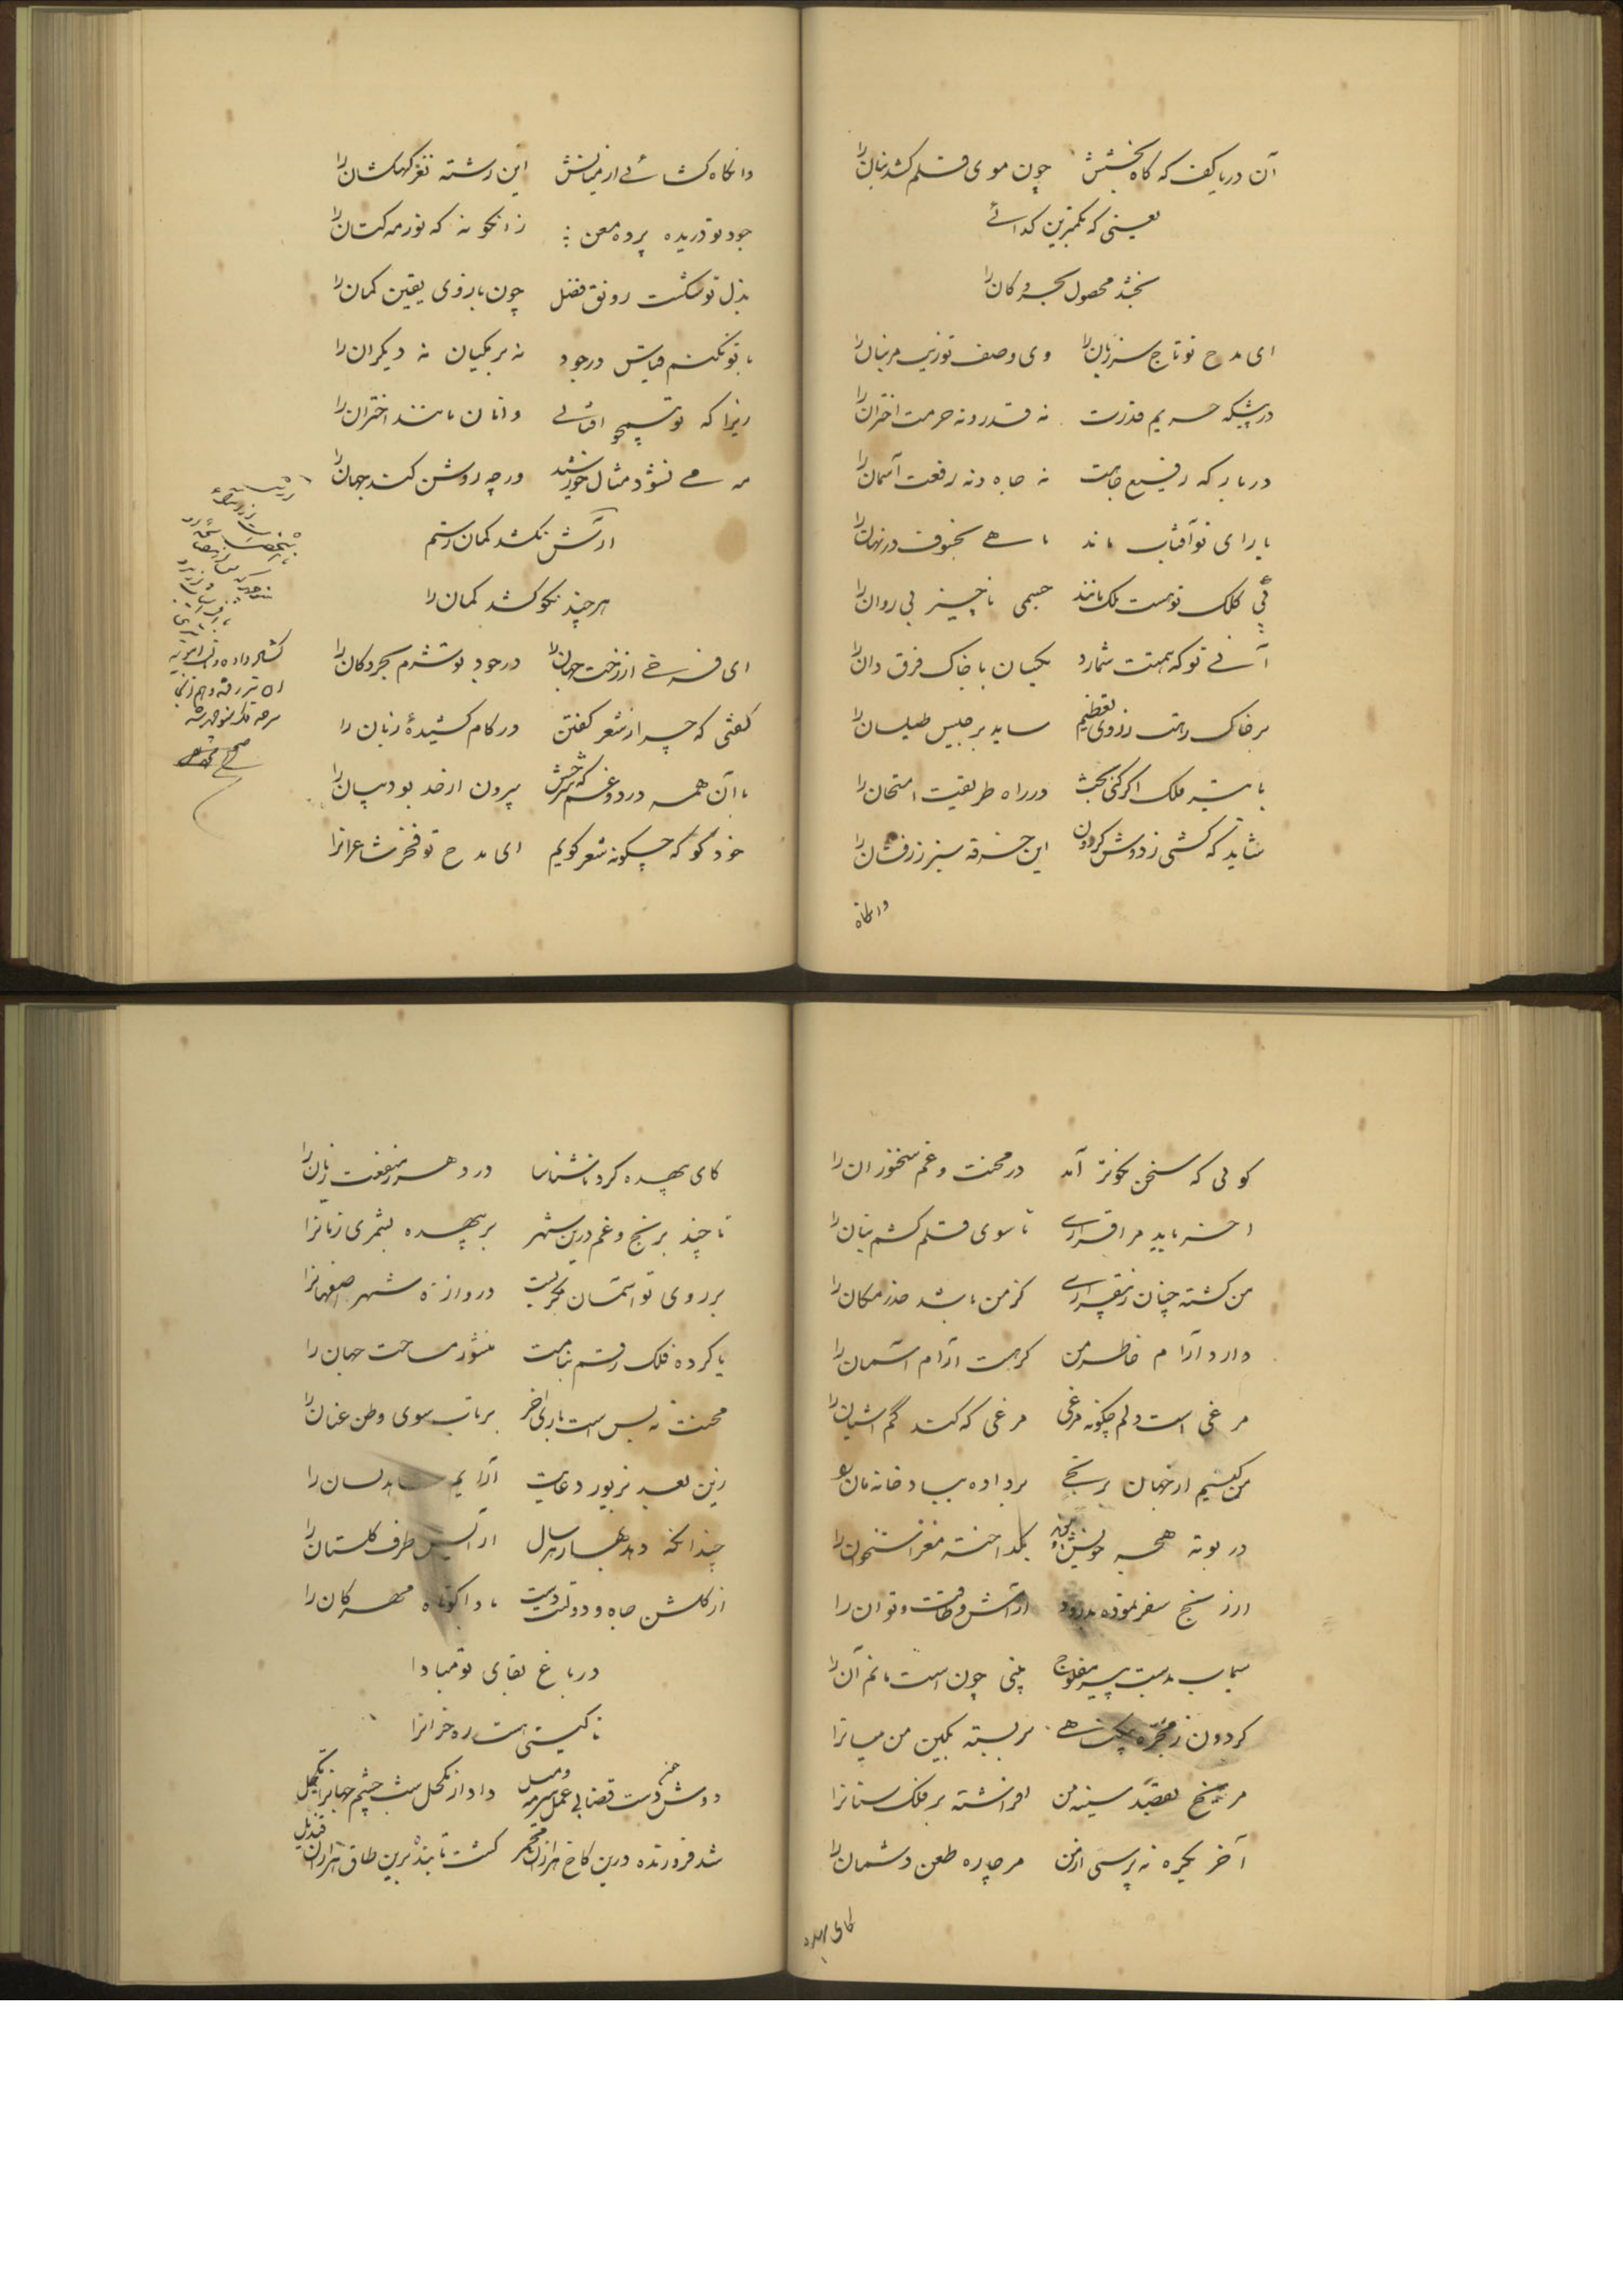 آن دریاکف که گاه بخشش چون موی قلم کشد بنان را
یعنی که بکمترین گدائے
بخشد محصول بحر و کان را
ای مدح تو تاج سر زبان را وی وصف تو زیب مر بنان را
در پیشگه حریم قدرت نه قدر و نه حرمت اختران را
در بارگه رفیع جاهت نه جاه و نه رفعت آسمان را
با رای تو آفتاب ماند ماهے بخسوف در نهان را
بی کلک تو هست ملک مانند جسمی ناچیز بی روان را
آنے تو که همتت شمارد یکسان با خاک فرق دان را
بر خاک رهت ز روی تعظیم ساید برجیس طیلسان را
با تیر فلک اگر کنی بحث در راه طریقت امتحان را
شاید که کشی ز دوش گردون این خرقه سبز زرفشان را
وانگاه
وانگاه کشائے از میانش این رشته نغز کهکشان را
جود تو دریده پرده معن زانگونه که نور مه کتان را
بذل تو شکست رونق فضل چون بازوی یقین گمان را
با تو نکنم قیاس در جود نه برمکیان نه دیگران را
زیرا که تو همچو افتابے وانان مانند اختران را
مه مے نشود مثال خورشید ورچه روشن کند جهان را
آرش نکشد کمان رستم
هرچند نکو کشد کمان را
ای فرخے از رخت جهان را در جود تو شرم بحر و کان را
گفتی که چرا ز شعر گفتن در کام کشیدهٔ زبان را
با آن همه درد و غم که شرحش بیرون از حد بود بیان را
خود گو که چگونه شعر گویم ای مدح تو فخر شاعرانرا
گوئی که سخن نکوتر آمد در محنت و غم سخنوران را
اخر باید مرا قرارے تا سوی قلم کشم بنان را
من گشته چنان ز بیقرارے کز من باشد حذر مکان را
دارد آرام خاطر من گر هست آرام آسمان را
مرغی است دلم چگونه مرغی مرغی که کند گم اشیان را
من کیستم از جهان برنجے برداده بباد خانه مان را
در بوته هجر خویش بگداخته مغز استخوان را
از رنج سفر نموده بدرود آرامش و طاقت و توان را
سیماب بدست پیر مفلوج بینی چون است مانم آن را
گردون ز مجره بربسته بکین من میانرا
مریخ بقصد سینه من افراشته بر فلک سنانرا
آخر یکره نه پرسی از من مر چاره طعن دشمان را
کای بیهده
کای بیهده گرد ناشناسا در دهر ز منفعت زیان را
تا چند برنج و غم درین شهر بر بیهده بشمری زمانرا
بر روی تو آسمان مگر بست دروازهٔ شهر اصفهانرا
یا کرده فلک رقم بنامت منشور مساحت جهان را
محنت نه بس است باری اخر برتاب سوی وطن عنان را
زین بعد بزیور دعایت آرایم شاهد لسان را
چندانکه دهد بهار هر سال آرایش طرف گلستان را
از گلشن جاه و دولتت دست بادا کوتاه مهرگان را
در باغ بقای تو مبادا
تا گیتی هست ره خزانرا
دوش دست قضا بی عمل سرمه و میل داد از کحل شب چشم جهانرا تکحیل
شد فروزنده درین کاخ هزاران مجمر گشت تابنده برین طاق هزاران قندیل